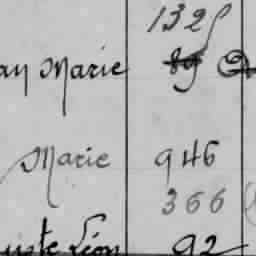 132
an Marie 89
Marie 946
366
uste Léon 92